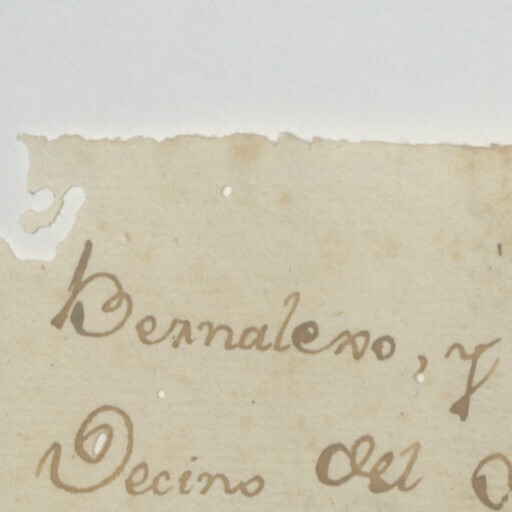 Bernalexo, y
Vecino del